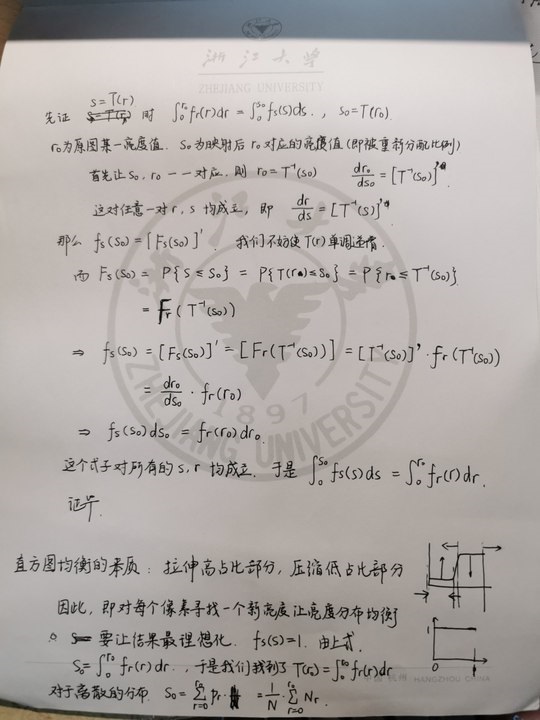 浙江大学
ZHEJIANG UNIVERSITY
先证 s=T(r) 时 ∫₀^{r₀} fr(r)dr = ∫₀^{s₀} fs(s)ds., s₀=T(r₀).
r₀为原图某一亮度值. s₀为映射后r₀对应的亮度值(即被重新分配比例)
首先让s₀, r₀一一对应, 则 r₀=T⁻¹(s₀) dr₀/ds₀ = [T⁻¹(s₀)]'.
这对任意一对r, s均成立, 即 dr/ds = [T⁻¹(s)]'.
那么 fs(s₀)=[Fs(s₀)]'. 我们不妨使T(r)单调递增.
而 Fs(s₀) = P{s≤s₀} = P{T(r)≤s₀} = P{r≤T⁻¹(s₀)}
= Fr(T⁻¹(s₀))
⇒ fs(s₀) = [Fs(s₀)]' = [Fr(T⁻¹(s₀))] = [T⁻¹(s₀)]'·fr(T⁻¹(s₀))
= dr₀/ds₀ · fr(r₀)
1897
ZHEJIANG UNIVERSITY
⇒ fs(s₀)ds₀ = fr(r₀)dr₀.
这个式子对所有的s, r均成立. 于是 ∫₀^{s₀} fs(s)ds = ∫₀^{r₀} fr(r)dr.
证毕.
直方图均衡的本质: 拉伸高占比部分, 压缩低占比部分
因此, 即对每个像素寻找一个新亮度让亮度分布均衡
要让结果最理想化. fs(s)=1. 由上式.
1
0
1
S₀=∫₀^{r₀} fr(r)dr., 于是我们找到了T(r₀)=∫₀^{r₀} fr(r)dr
对于离散的分布. S₀ = Σ_{r=0}^{r₀} pr = 1/N · Σ_{r=0}^{r₀} Nr.
中国·杭州 HANGZHOU CHINA